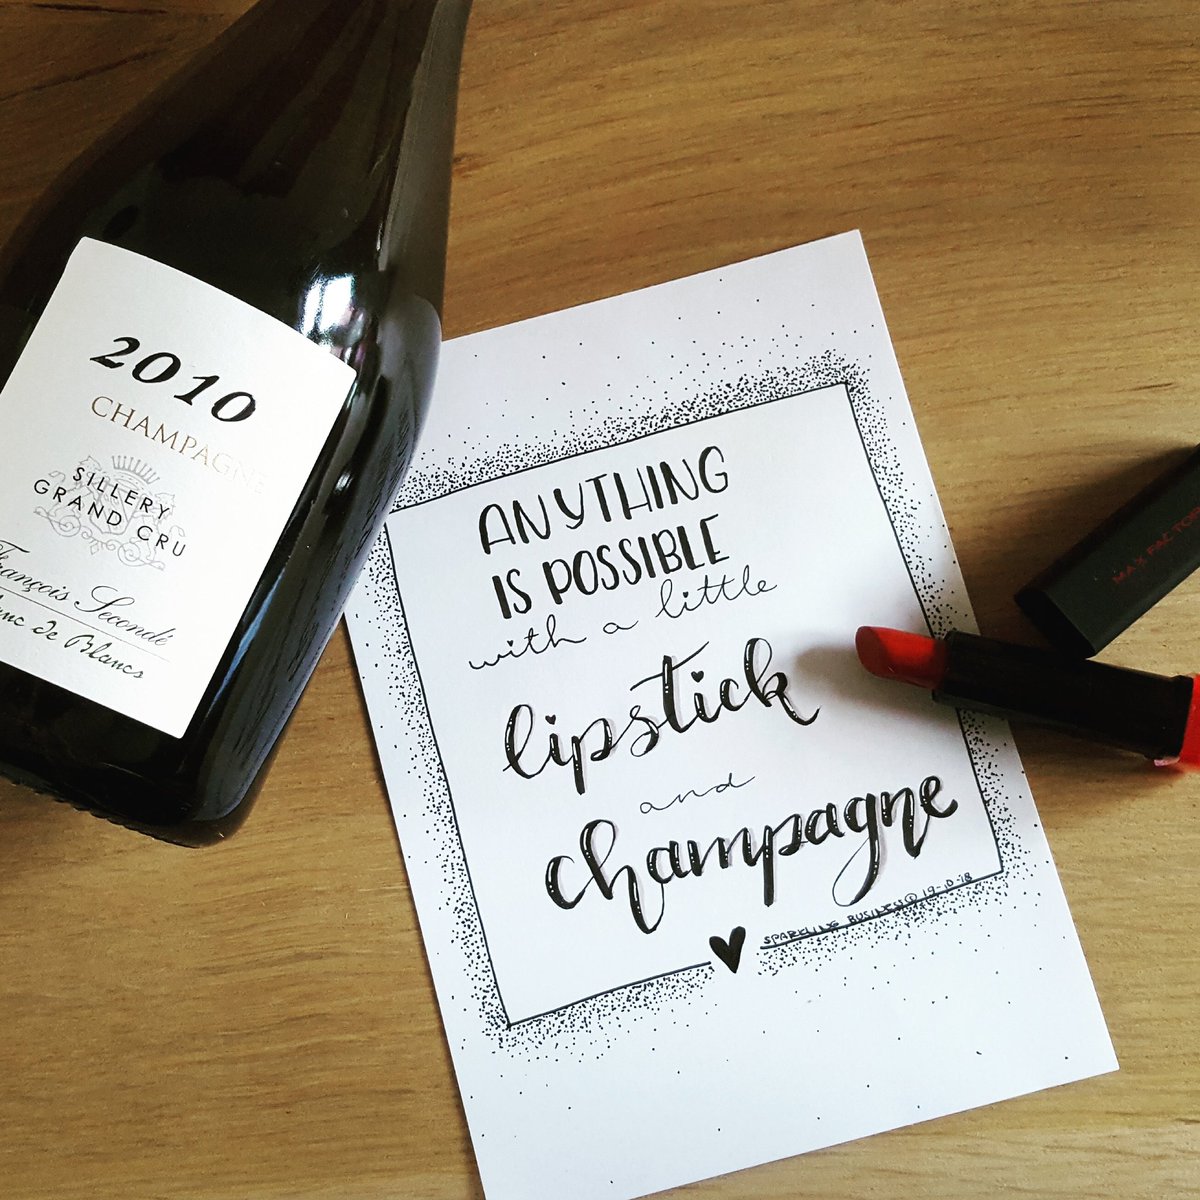 2010
CHAMPAGNE
SILLERY
GRAND CRU
François Secondé
Blanc de Blancs
ANYTHING
IS POSSIBLE
with a little
lipstick
and
champagne
SPARKLING BUSINESS © 19-10-18
MAX FACTOR